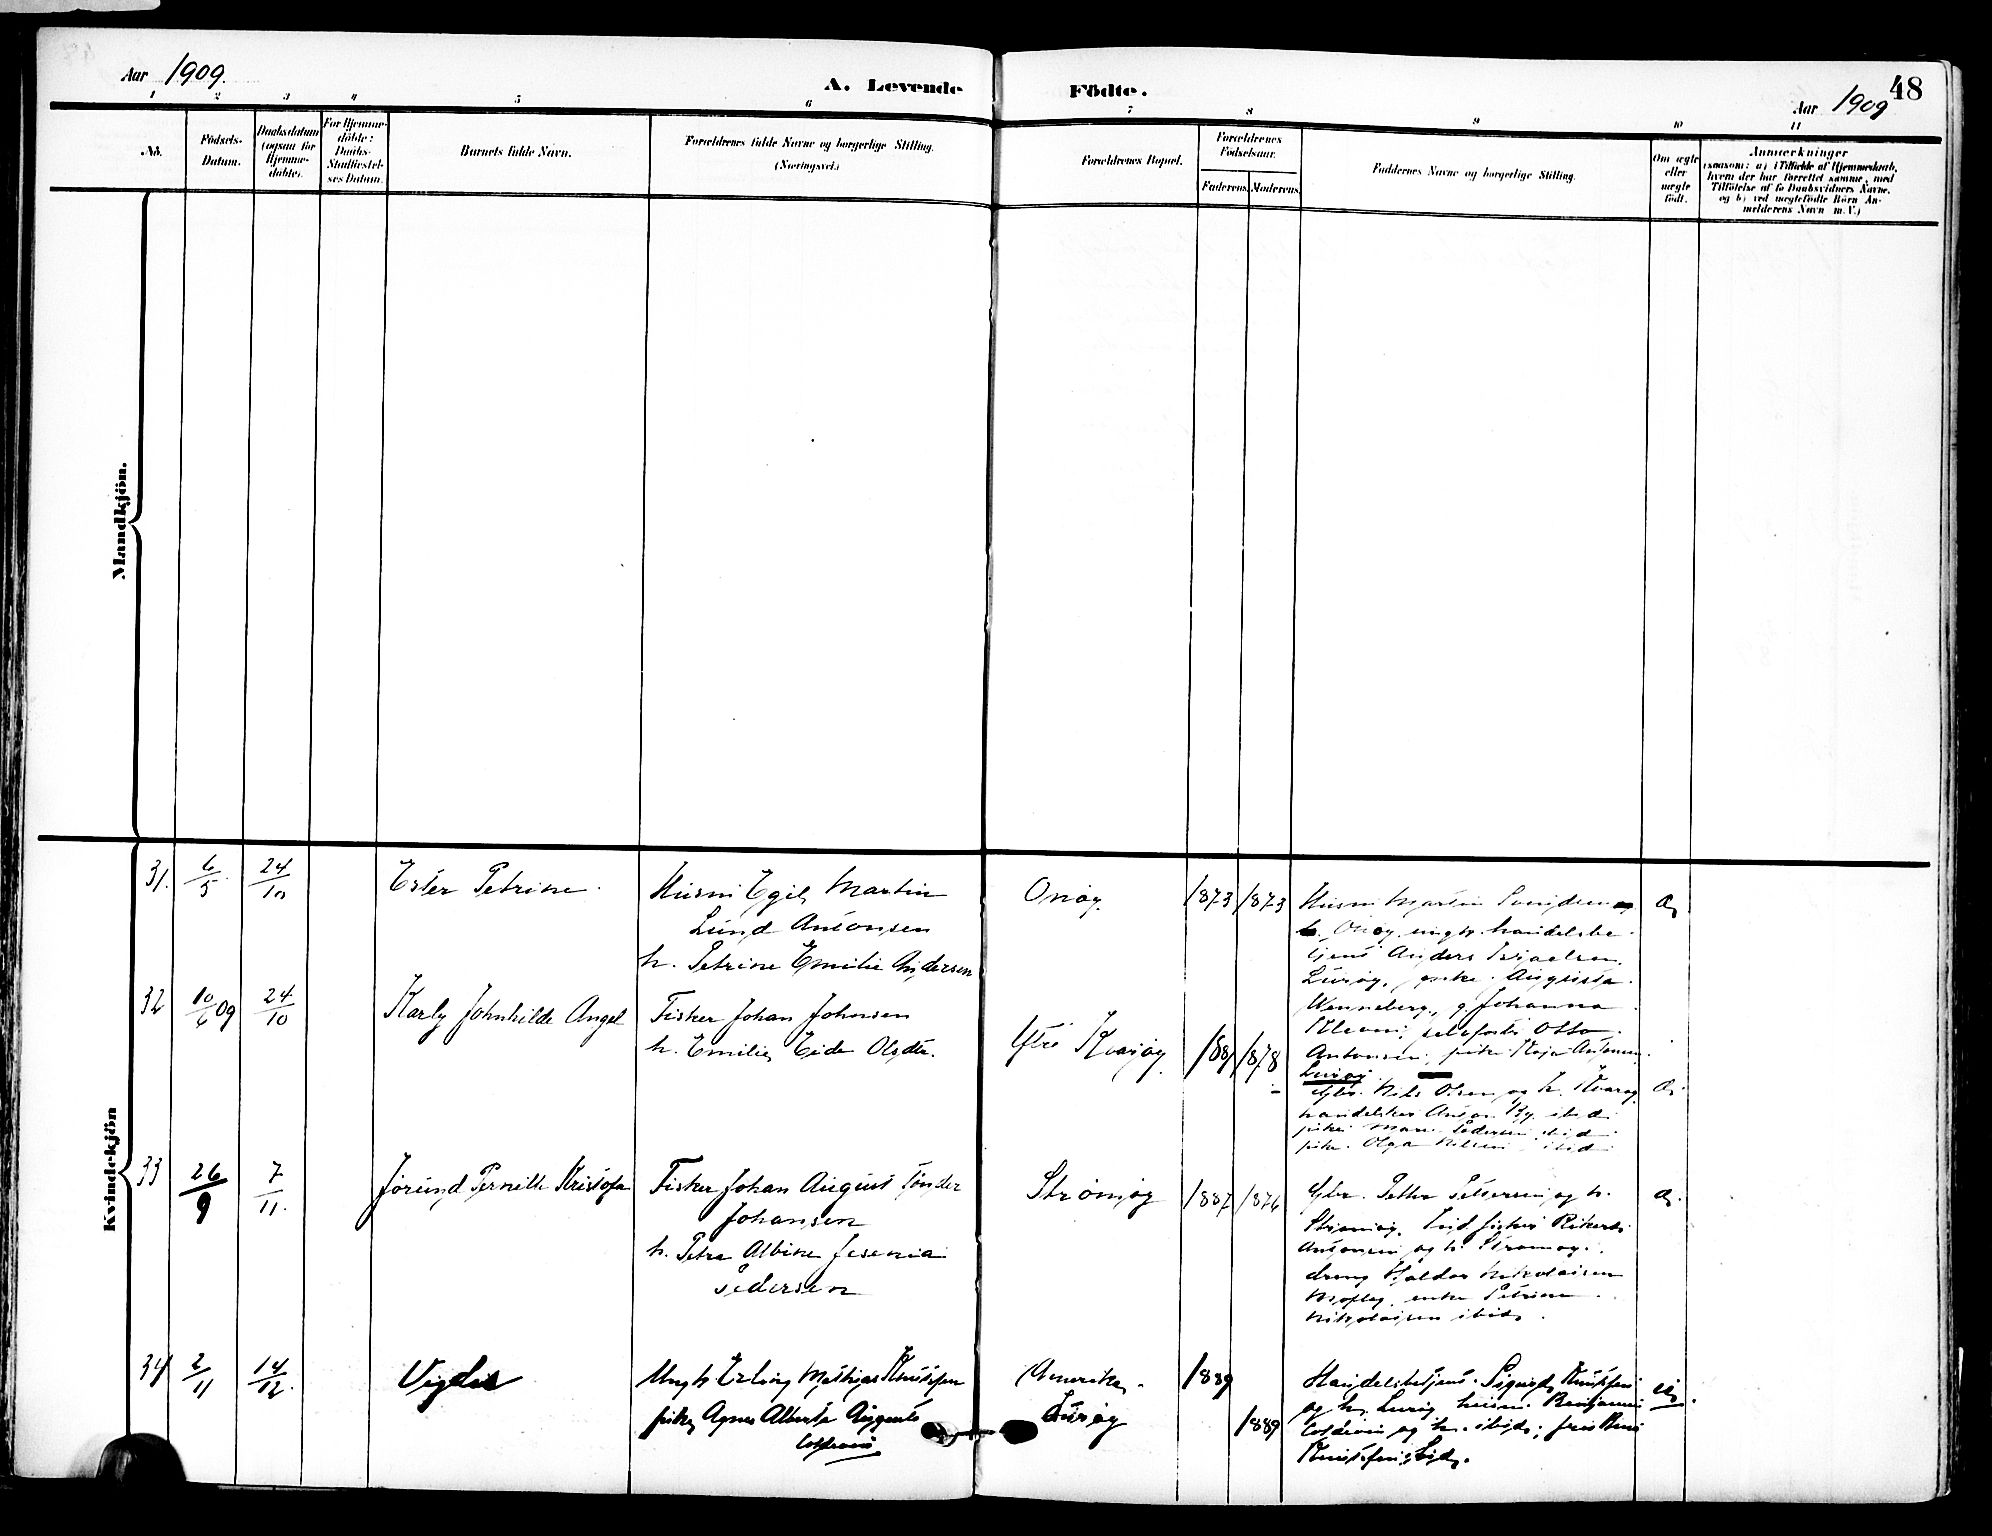 Aar 1909.
A. Levende
Födte.
48
Aar 1909
1 2 3 4 5 6 7 8 9 10 11
No.
Födsels-
Datum.
Daabsdatum
(ogsaa for
Hjemme-
döbte).
For Hjemme-
döbte:
Daabs-
Stadfæstel-
ses Datum.
Barnets fulde Navn.
Forældrenes fulde Navne og borgerlige Stilling.
(Næringsvei.)
Forældrenes Bopæl.
Forældrenes
Födselsaar.
Faderens. Moderens.
Faddernes Navne og borgerlige Stilling.
Om ægte
eller
uægte
födt.
Anmærkninger
(saasom: a) i Tilfælde af Hjemmedaab,
hvem der har forrettet samme, med
Tilföielse af to Daabsvidners Navne,
og b) ved uægtefödte Börn An-
melderens Navn m. V.)
Mandkjön.
Kvindekjön
31. 6/5 24/10
Ester Petrine.
Husm Egil Martin
Lund Antonsen
h. Petrine Emilie Andersen
Onøy.
1873 1873
Husm Martin
h. Onøy, handelsbe-
tjent Anders
Lurøy, enke Augusta
Wenneberg, g. Johanna
Otto
Antonsen, pike Antonsen
Lurøy
Æ
32 10/6 09 24/10
Karly Johnhilde Angel
Fisker Johan Johnsen
h. Emilie Eide Olsdtr.
Ytre Kvarøy
1881 1878
Gbr. Nils Olsen og h. Kvarøy
Anton ibid
pike Pedersen ibid
pike Olga Nilsen ibid
Æ
33 26/9 7/11.
Jørund Pernille Kristofa
Fisker Johan August Tønder
Johansen
h. Petra Albine Jesenia
Pedersen
Strømøy
1887 1876
Gbr. Petter Petersen og h.
Strømøy. fisker Rikert
Antonsen og h. Strømøy.
dreng Haldor Nikolaisen
enke Petrine
Nikolaisen ibid.
Æ
34 2/11 14/12.
Vigdis
Ungk. Erling Mathias Knutsen
pike Agnes Alberta Augusta
Coldevin
Amerika.
Lurøy
1889
1889
Handelsbetjent Sigurd Knutsen
og h. Lurøy Benjamin
Coldevin og h. ibid;
Knutsen, ibid.
Uæ.